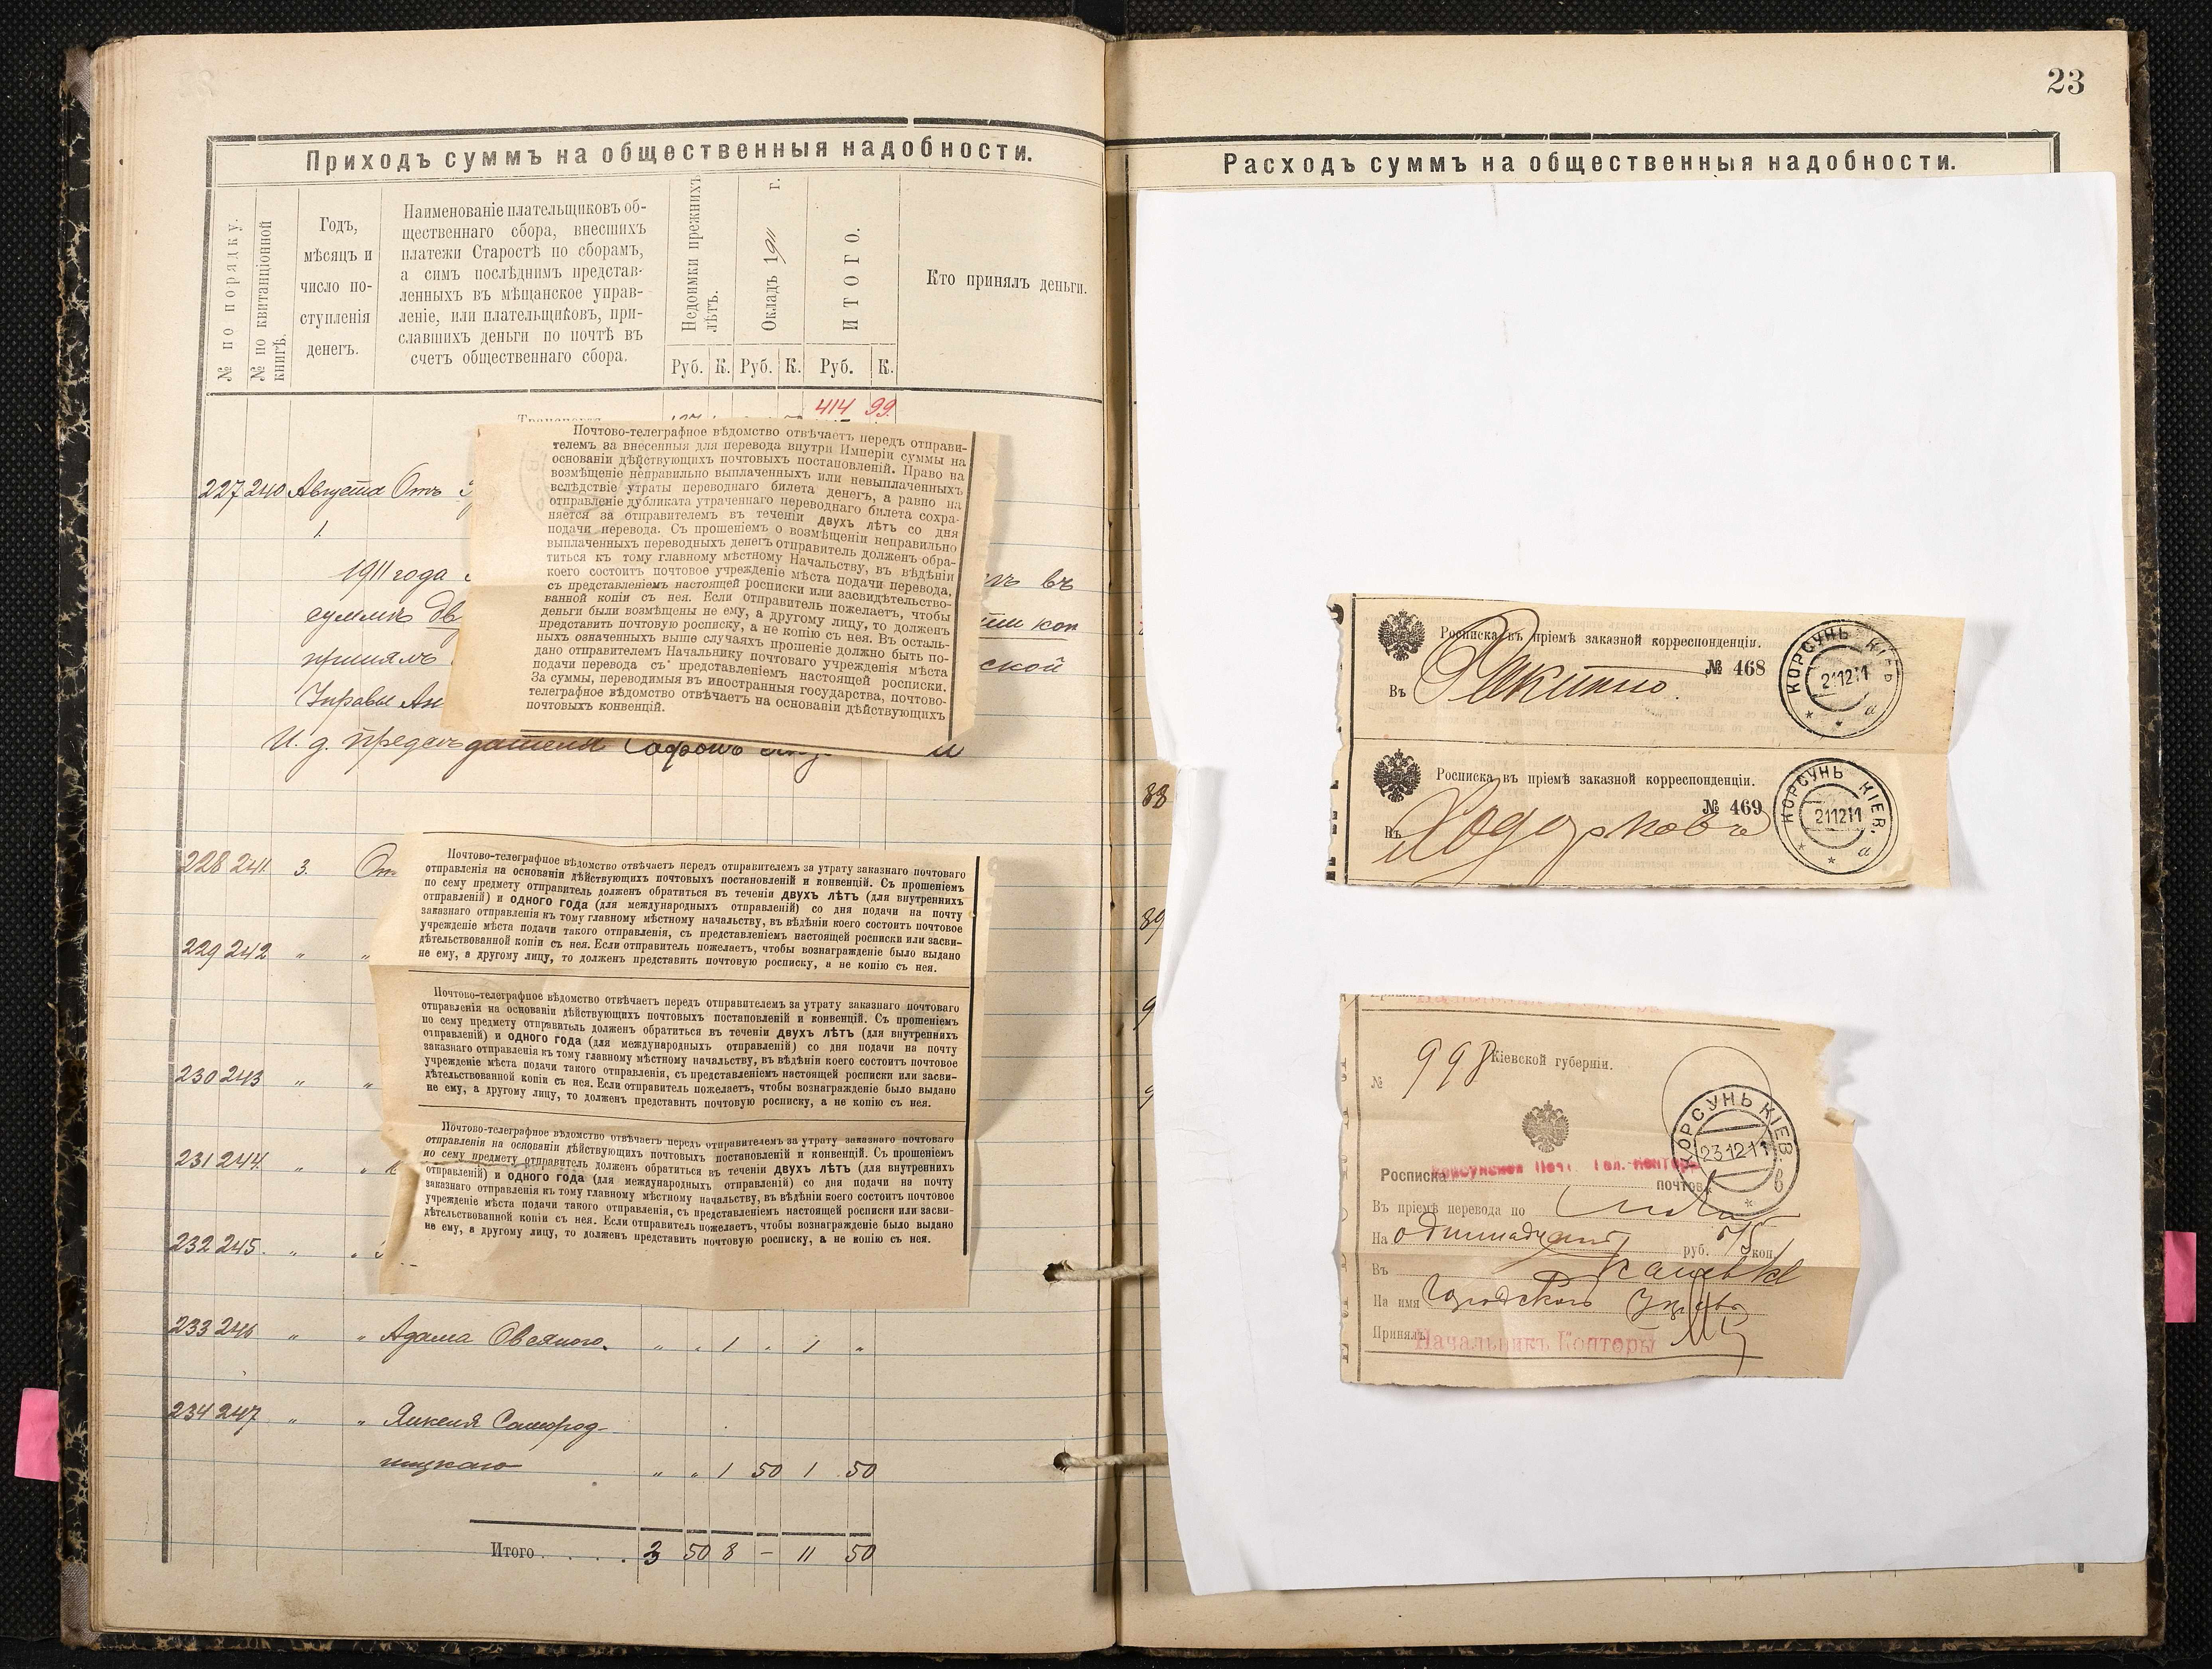 Приходъ суммъ на общественныя надобности.
№ по порядку.
№ по квитанціонной книгѣ.
Годъ,
мѣсяцъ и
число по-
ступленія
денегъ.
Наименованіе плательщиковъ об-
щественнаго сбора, внесшихъ
платежи Старостѣ по сборамъ,
а симъ послѣднимъ представ-
ленныхъ въ мѣщанское управ-
леніе, или плательщиковъ, при-
славшихъ деньги по почтѣ въ
счетъ общественнаго сбора.
Недоимки прежнихъ лѣтъ.
Окладъ 1911 г.
ИТОГО.
Кто принялъ деньги.
Руб. К. Руб. К. Руб. К.
414 99.
227 240 Августа Отъ
1.
1911 года
въ
суммѣ
коп
принялъ
ской
Управы
И. д. предсѣдателя
Почтово-телеграфное вѣдомство отвѣчаетъ передъ отправи-
телемъ за внесенныя для перевода внутри Имперіи суммы на
основаніи дѣйствующихъ почтовыхъ постановленій. Право на
возмѣщеніе неправильно выплаченныхъ или невыплаченныхъ
вслѣдствіе утраты переводнаго билета денегъ, а равно на
отправленіе дубликата утраченнаго переводнаго билета сохра-
няется за отправителемъ въ теченіи двухъ лѣтъ со дня
подачи перевода. Съ прошеніемъ о возмѣщеніи неправильно
выплаченныхъ переводныхъ денегъ отправитель долженъ обра-
титься къ тому главному мѣстному Начальству, въ вѣдѣніи
коего состоитъ почтовое учрежденіе мѣста подачи перевода,
съ представленіемъ настоящей росписки или засвидѣтельство-
ванной копіи съ нея. Если отправитель пожелаетъ, чтобы
деньги были возмѣщены не ему, а другому лицу, то долженъ
представить почтовую росписку, а не копію съ нея. Въ осталь-
ныхъ означенныхъ выше случаяхъ прошеніе должно быть по-
дано отправителемъ Начальнику почтоваго учрежденія мѣста
подачи перевода съ представленіемъ настоящей росписки.
За суммы, переводимыя въ иностранныя государства, почтово-
телеграфное вѣдомство отвѣчаетъ на основаніи дѣйствующихъ
почтовыхъ конвенцій.
228 241. 3.
229 242 " "
230 243 " "
231 244. " "
232 245. " "
Почтово-телеграфное вѣдомство отвѣчаетъ передъ отправителемъ за утрату заказнаго почтоваго
отправленія на основаніи дѣйствующихъ почтовыхъ постановленій и конвенцій. Съ прошеніемъ
по сему предмету отправитель долженъ обратиться въ теченіи двухъ лѣтъ (для внутреннихъ
отправленій) и одного года (для международныхъ отправленій) со дня подачи на почту
заказнаго отправленія къ тому главному мѣстному начальству, въ вѣдѣніи коего состоитъ почтовое
учрежденіе мѣста подачи такого отправленія, съ представленіемъ настоящей росписки или засви-
дѣтельствованной копіи съ нея. Если отправитель пожелаетъ, чтобы вознагражденіе было выдано
не ему, а другому лицу, то долженъ представить почтовую росписку, а не копію съ нея.
Почтово-телеграфное вѣдомство отвѣчаетъ передъ отправителемъ за утрату заказнаго почтоваго
отправленія на основаніи дѣйствующихъ почтовыхъ постановленій и конвенцій. Съ прошеніемъ
по сему предмету отправитель долженъ обратиться въ теченіи двухъ лѣтъ (для внутреннихъ
отправленій) и одного года (для международныхъ отправленій) со дня подачи на почту
заказнаго отправленія къ тому главному мѣстному начальству, въ вѣдѣніи коего состоитъ почтовое
учрежденіе мѣста подачи такого отправленія, съ представленіемъ настоящей росписки или засви-
дѣтельствованной копіи съ нея. Если отправитель пожелаетъ, чтобы вознагражденіе было выдано
не ему, а другому лицу, то долженъ представить почтовую росписку, а не копію съ нея.
Почтово-телеграфное вѣдомство отвѣчаетъ передъ отправителемъ за утрату заказнаго почтоваго
отправленія на основаніи дѣйствующихъ почтовыхъ постановленій и конвенцій. Съ прошеніемъ
по сему предмету отправитель долженъ обратиться въ теченіи двухъ лѣтъ (для внутреннихъ
отправленій) и одного года (для международныхъ отправленій) со дня подачи на почту
заказнаго отправленія къ тому главному мѣстному начальству, въ вѣдѣніи коего состоитъ почтовое
учрежденіе мѣста подачи такого отправленія, съ представленіемъ настоящей росписки или засви-
дѣтельствованной копіи съ нея. Если отправитель пожелаетъ, чтобы вознагражденіе было выдано
не ему, а другому лицу, то долженъ представить почтовую росписку, а не копію съ нея.
233 246 " " Адама Овсяного. " " 1 " 1 "
234 247. " " Янкеля Самород-
ницкаго " " 1 50 1 50
Итого . . . . . 3 50 8 – 11 50
23
Расходъ суммъ на общественныя надобности.
88
89
Росписка въ пріемѣ заказной корреспонденціи.
№ 468
Въ Ракитно.
КОРСУНЬ КІЕВ.
211211
а
Росписка въ пріемѣ заказной корреспонденціи.
№ 469
Въ Ходорковъ
КОРСУНЬ КІЕВ.
211211
а
№ 998 Кіевской губерніи.
КОРСУНЬ КІЕВ.
231211
Росписка Корсунской Почт. Тел. Конторы почтов.
Въ пріемѣ перевода по
На одиннадцать руб. 75 коп.
Въ Каневъ
На имя Городского
Принялъ Начальникъ Конторы